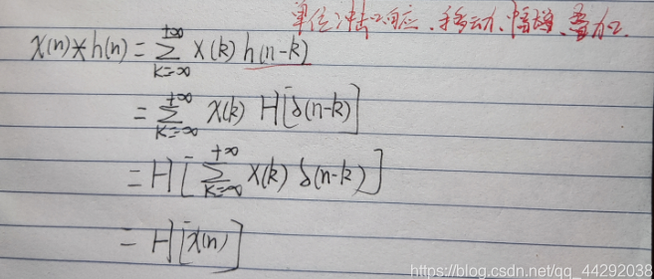 单位冲击响应、移动、幅增、叠加.
x(n)*h(n) = ∑_{K=∞}^{+∞} x(k) h(n-k)
= ∑_{K=∞}^{+∞} x(k) H[δ(n-k)]
= H[∑_{K=∞}^{+∞} x(k) δ(n-k)]
= H[x(n)]
https://blog.csdn.net/qq_44292038